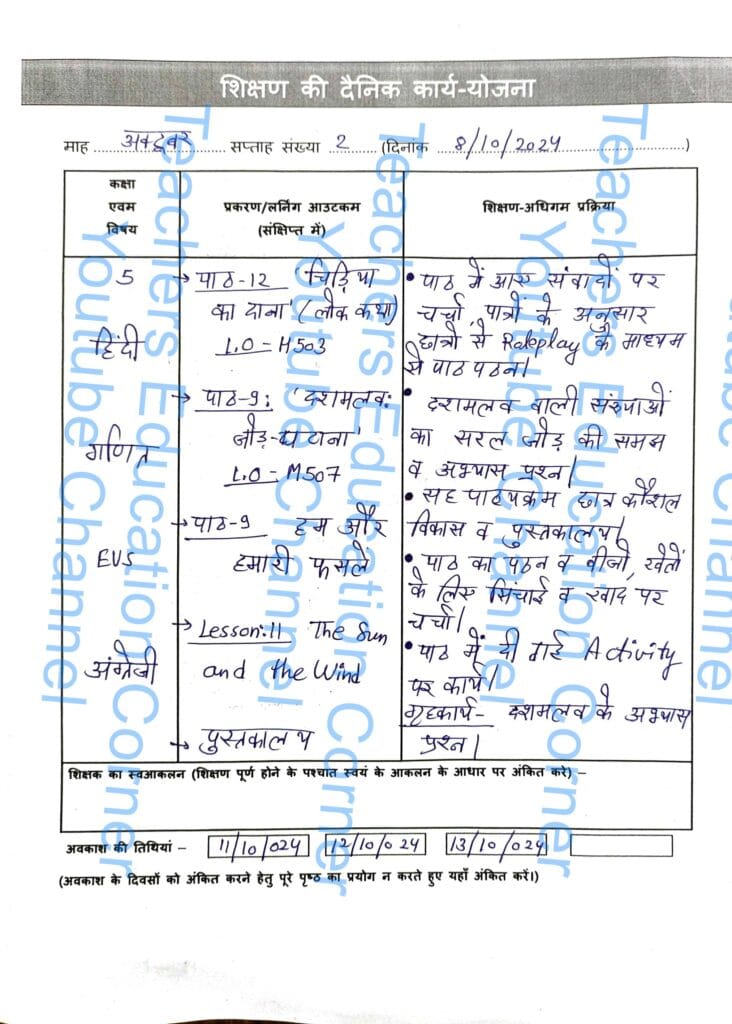 शिक्षण की दैनिक कार्य-योजना
माह अक्टूबर सप्ताह संख्या 2 (दिनांक 8/10/2024)
कक्षा
एवम
विषय
प्रकरण/लर्निंग आउटकम
(संक्षिप्त में)
शिक्षण-अधिगम प्रक्रिया
5
हिंदी
→ पाठ-12 'चिड़िया
का दाना' (लोक कथा)
L.O - H503
• पाठ में आए संवादों पर
चर्चा, पात्रों के अनुसार
छात्रों से Roleplay के माध्यम
से पाठ पठन।
गणित
→ पाठ-9: 'दशमलव:
जोड़-घटाना'
L.O - M507
• दशमलव वाली संख्याओं
का सरल जोड़ की समझ
व अभ्यास प्रश्न।
• सह पाठ्यक्रम छात्र कौशल
विकास व पुस्तकालय।
EVS
→ पाठ-9 हम और
हमारी फसलें
• पाठ का पठन व बीजों, खेतों
के लिए सिंचाई व खाद पर
चर्चा।
अंग्रेजी
→ Lesson:11 The Sun
and the Wind
• पाठ में दी गई Activity
पर कार्य।
→ पुस्तकालय
गृहकार्य- दशमलव के अभ्यास
प्रश्न।
शिक्षक का स्वआकलन (शिक्षण पूर्ण होने के पश्चात स्वयं के आकलन के आधार पर अंकित करे) –
अवकाश की तिथियां – 11/10/024 12/10/024 13/10/024
(अवकाश के दिवसों को अंकित करने हेतु पूरे पृष्ठ का प्रयोग न करते हुए यहाँ अंकित करें।)
Teachers Education Corner
Youtube Channel
Teachers Education Corner
Youtube Channel
Teachers Education Corner
Youtube Channel